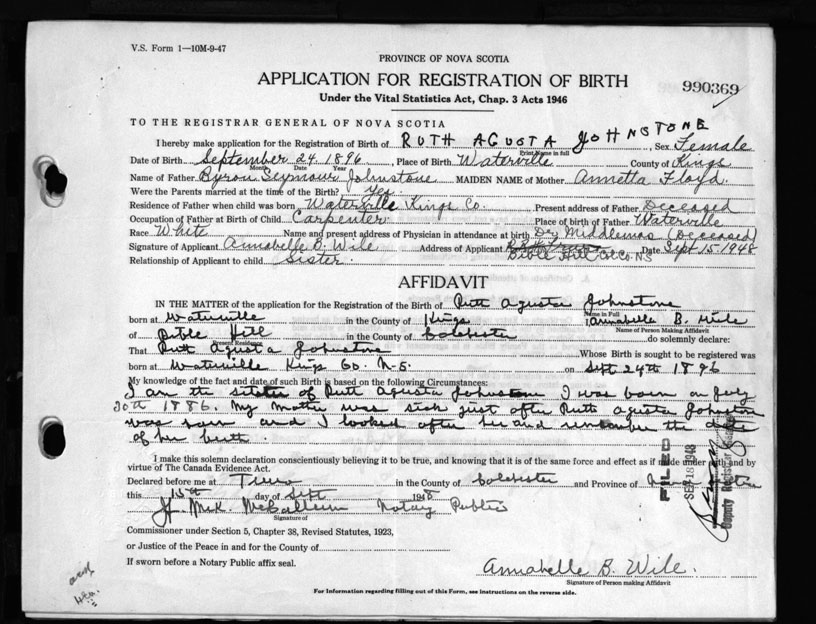 V.S. Form 1—10M-9-47
PROVINCE OF NOVA SCOTIA
APPLICATION FOR REGISTRATION OF BIRTH
990369
Under the Vital Statistics Act, Chap. 3 Acts 1946
TO THE REGISTRAR GENERAL OF NOVA SCOTIA
I hereby make application for the Registration of Birth of RUTH AGUSTA JOHNSTONE, Sex Female
Print Name in full
Date of Birth September 24 1896, Place of Birth Waterville County of Kings
Month Date Year
Name of Father Byron Seymour Johnstone MAIDEN NAME of Mother Annetta Floyd
Were the Parents married at the time of the Birth? Yes
Residence of Father when child was born Waterville Kings Co. Present address of Father Deceased
Occupation of Father at Birth of Child Carpenter Place of birth of Father Waterville
Race White Name and present address of Physician in attendance at birth Dr Middlemas (Deceased)
Signature of Applicant Annabelle B. Wile Address of Applicant Date Sept 15 1948
Relationship of Applicant to child Sister. Bible Hill Col Co. NS
AFFIDAVIT
IN THE MATTER of the application for the Registration of the Birth of Ruth Agusta Johnstone
Name in Full
born at Waterville in the County of Kings I, Annabelle B. Wile
Name of Person Making Affidavit
of Bible Hill in the County of Colchester do solemnly declare:
That Ruth Agusta Johnstone Whose Birth is sought to be registered was
born at Waterville Kings Co. N.S. on Sept 24th 1896
My knowledge of the fact and date of such Birth is based on the following Circumstances:
I am the sister of Ruth Agusta Johnstone I was born on July
30th 1886. My mother was sick just after Ruth Agusta Johnstone
was born and I looked after her and remember the date
of her birth.
I make this solemn declaration conscientiously believing it to be true, and knowing that it is of the same force and effect as if made under oath and by
virtue of The Canada Evidence Act.
Declared before me at Truro in the County of Colchester and Province of Nova Scotia
this 15th day of Sept 1948
Notary Public
Signature of
Commissioner under Section 5, Chapter 38, Revised Statutes, 1923,
or Justice of the Peace in and for the County of
If sworn before a Notary Public affix seal.
Annabelle B. Wile.
Signature of Person making Affidavit
For Information regarding filling out of this Form, see instructions on the reverse side.
FILED
SEP 18 1948
Deputy Registrar General